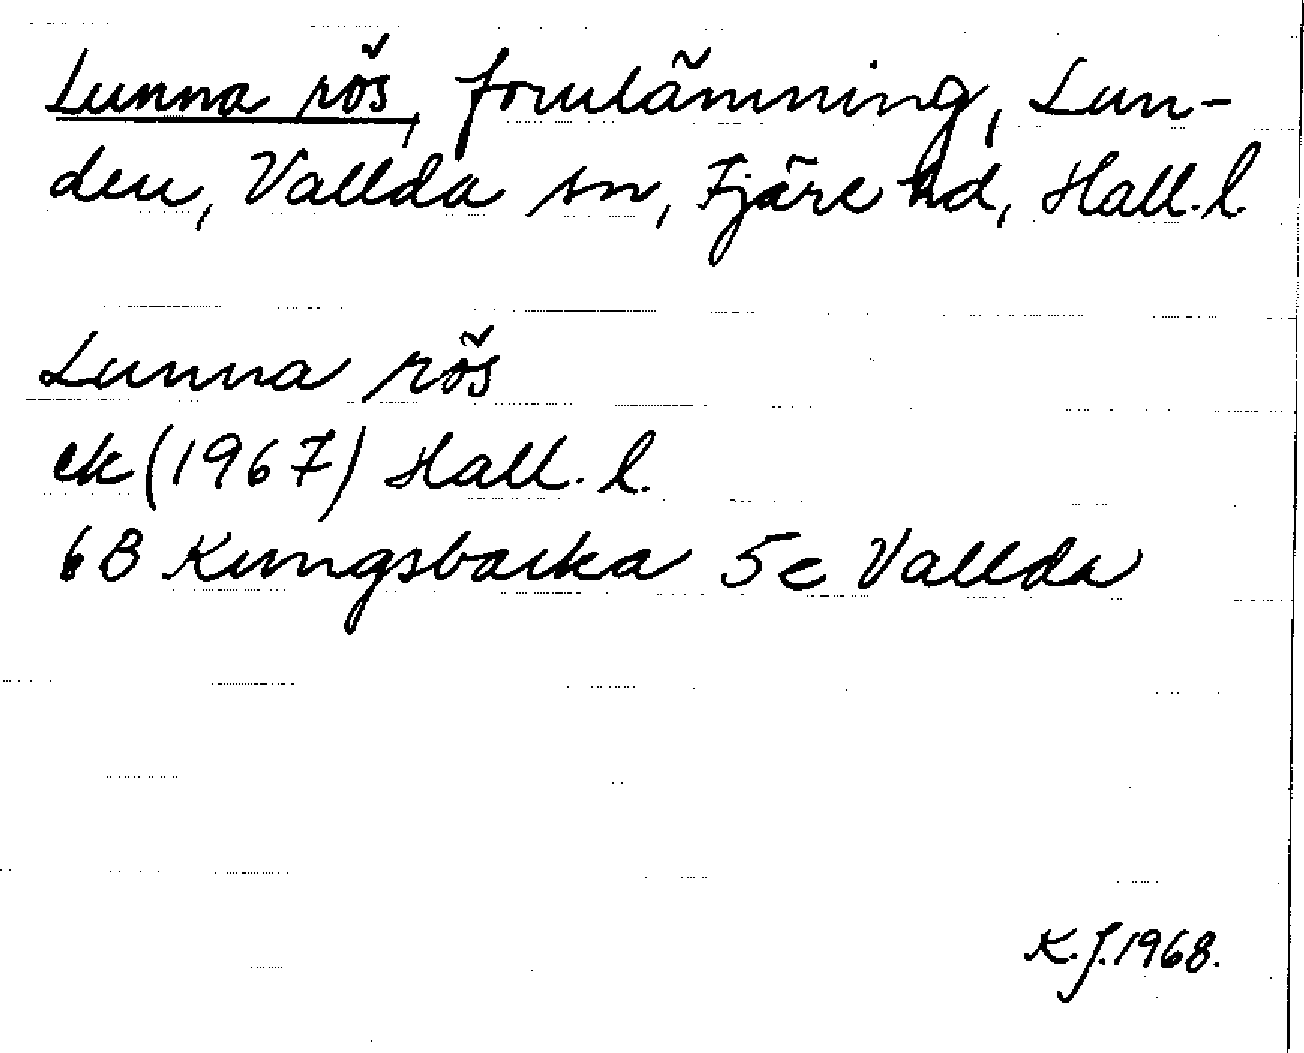 Lunna rös, fornlämning, Lun-
den, Vallda sn, Fjäre hd, Hall. l.
Lunna rös
ek (1967) Hall. l.
6B Kungsbacka 5c Vallda
K.J. 1968.